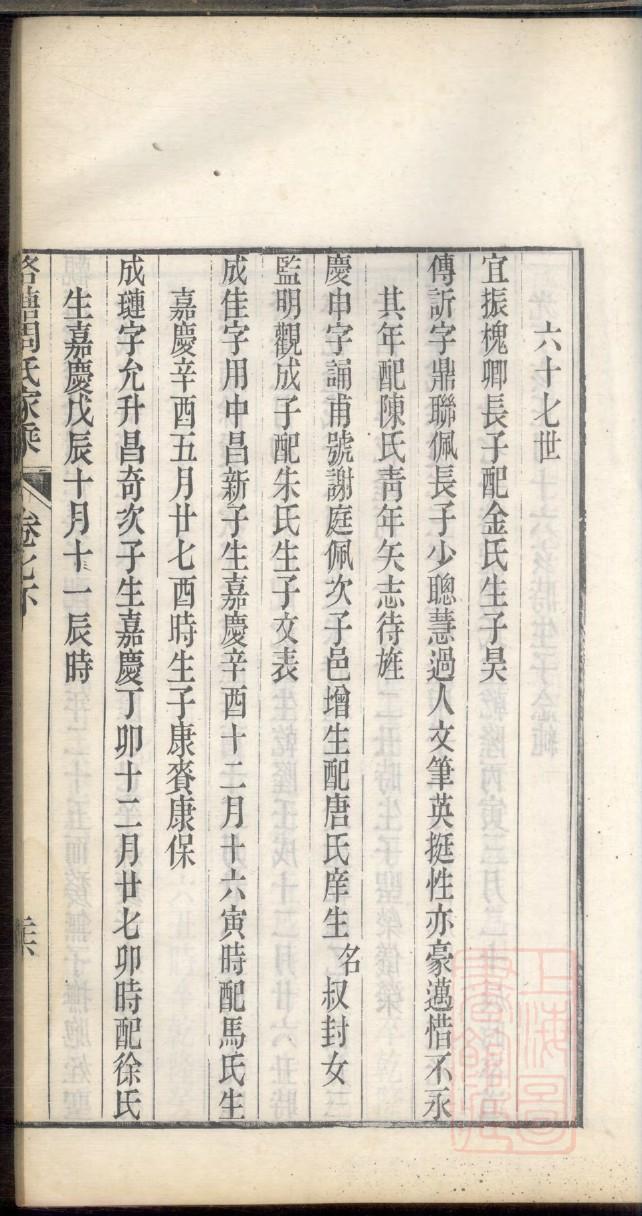 六十七世
宜振槐卿長子配金氏生子昊
傳訢字鼎聯佩長子少聰慧過人文筆英挺性亦豪邁惜不永
其年配陳氏青年矢志待旌
慶申字誦甫號謝庭佩次子邑增生配唐氏庠生名叔封女
監明觀成子配朱氏生子文表
成佳字用中昌新子生嘉慶辛酉十二月十六寅時配馬氏生
嘉慶辛酉五月廿七酉時生子康賚康保
成璉字允升昌奇次子生嘉慶丁卯十二月廿七卯時配徐氏
生嘉慶戊辰十月十一辰時
周氏家乘 卷七下
上海圖書館藏